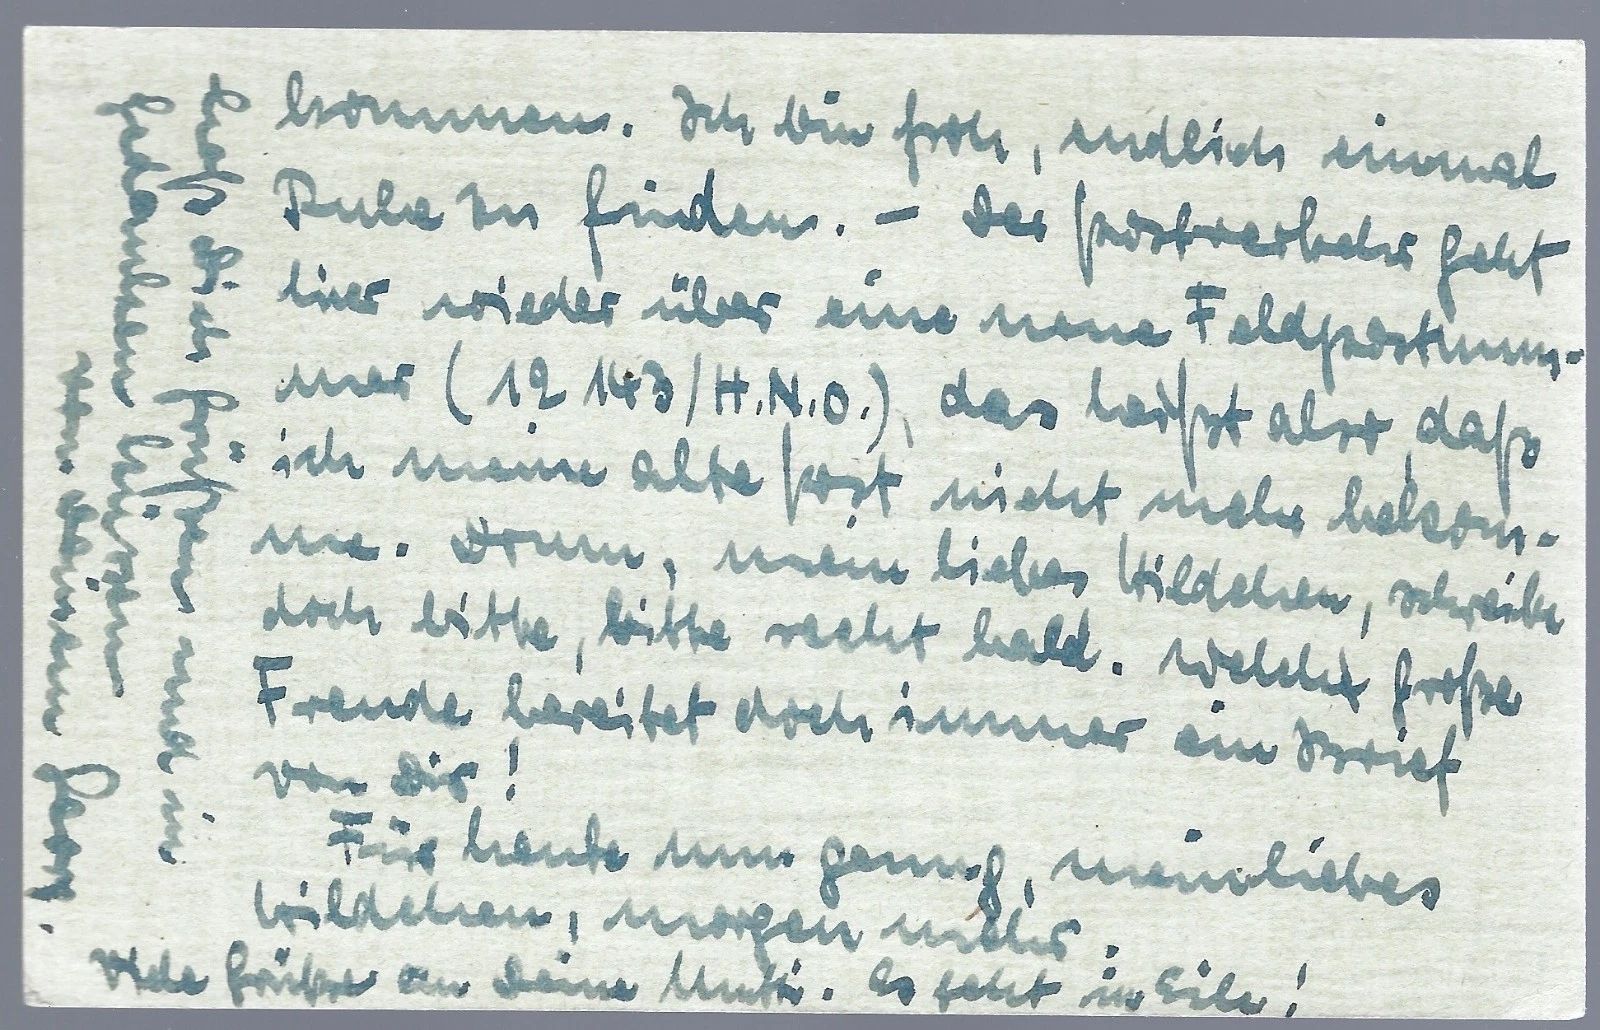 kommen. Ich bin froh, endlich einmal
Ruhe zu finden. – Der Postverkehr geht
hier wieder über eine neue Feldpostnum-
mer (12 143/H.N.O.), das heißt also, daß
ich meine alte Post nicht mehr bekom-
me. Drum, mein liebes Hildchen, schreibe
doch bitte, bitte recht bald. Welche große
Freude bereitet doch immer ein Brief
von Dir!
Für heute nun genug, mein liebes
Hildchen, morgen mehr.
Viele Grüße an Deine Mutti. Es geht in Eile!
Laß Dich grüßen und in
Gedanken küssen
von Deinem